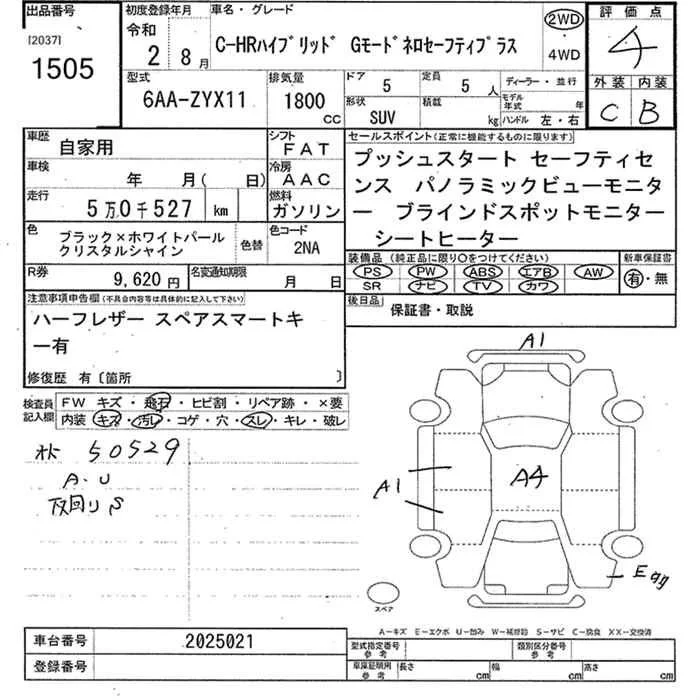 出品番号
[2037]
1505
初度登録年月
令和
2 8月
車名・グレード
C-HRハイブリッド Gモードネロセーフティプラス
2WD
4WD
評価点
4
外装 内装
C B
型式
6AA-ZYX11
排気量
1800
CC
ドア
5
定員
5 人
形状
SUV
積載
kg
ディーラー・並行
モデル年式 年
ハンドル 左・右
車歴
自家用
シフト
FAT
車検
年 月( 日)
冷房
AAC
走行
5万0千527 km
燃料
ガソリン
色
ブラック×ホワイトパール
クリスタルシャイン
色替
色コード
2NA
R券
9,620円
名変通知期限
月 日
セールスポイント(正常に機能するものに限ります)
プッシュスタート セーフティセ
ンス パノラミックビューモニタ
ー ブラインドスポットモニター
シートヒーター
装備品 (純正品に限り○をつけてください)
新車保証書
PS PW ABS エアB AW
SR ナビ TV カワ
有・無
後日品
保証書・取説
注意事項申告欄(不具合内容等は具体的に記入して下さい)
ハーフレザー スペアスマートキ
ー有
修復歴 有〔箇所 〕
検査員記入欄
FW キズ・飛石・ヒビ割・リペア跡・×要
内装 キズ・汚レ・コゲ・穴・スレ・キレ・破レ
50529
A・U
A1
A1
A4
スペア
A-キズ E-エクボ U-凹み W-補修跡 S-サビ C-腐食 XX-交換済
車台番号
2025021
登録番号
型式指定番号
参考
類別区分番号
参考
車庫証明用
参考
長さ cm
幅 cm
高さ cm